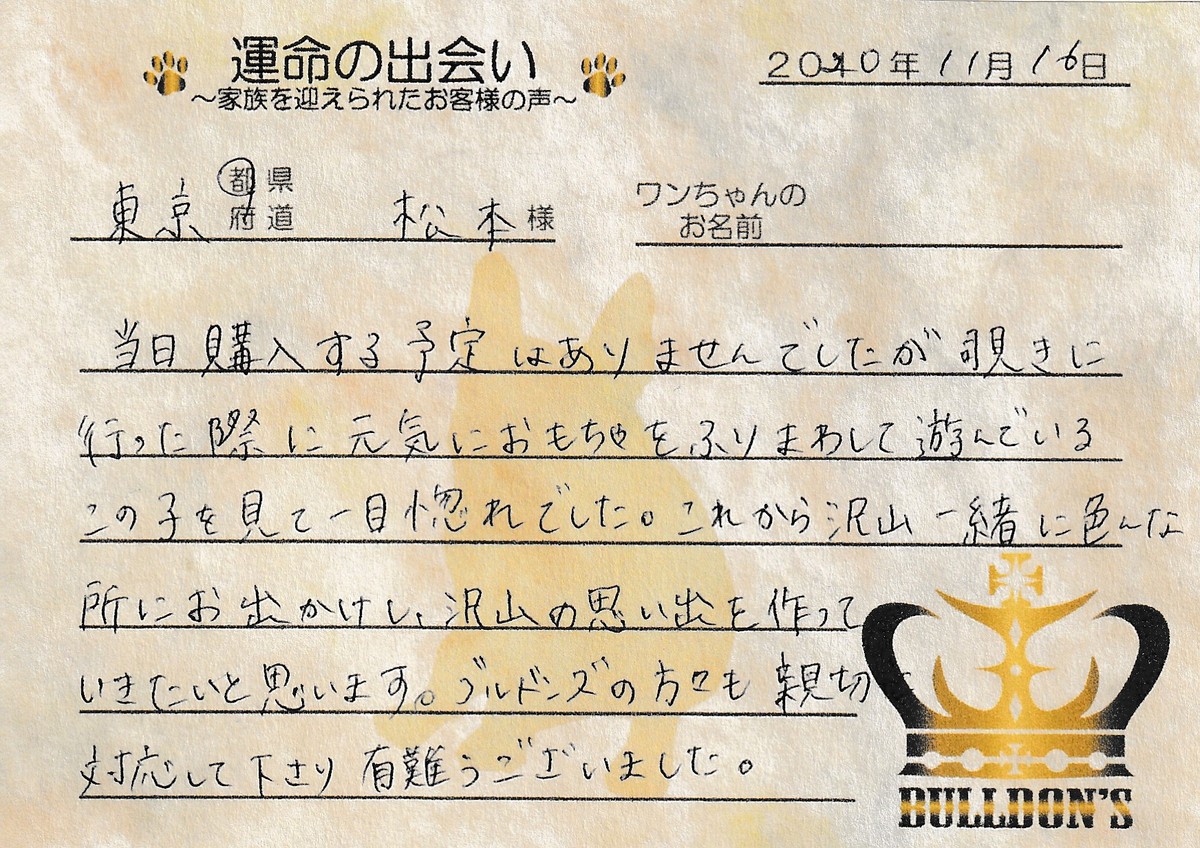 運命の出会い
~家族を迎えられたお客様の声~
2020年11月16日
東京 都県府道 松本様
ワンちゃんの
お名前
当日購入する予定はありませんでしたが覗きに
行った際に元気におもちゃをふりまわして遊んでいる
この子を見て一目惚れでした。これから沢山一緒に色んな
所にお出かけし、沢山の思い出を作って
いきたいと思います。ブルドンズの方々も親切に
対応して下さり有難うございました。
BULLDON'S